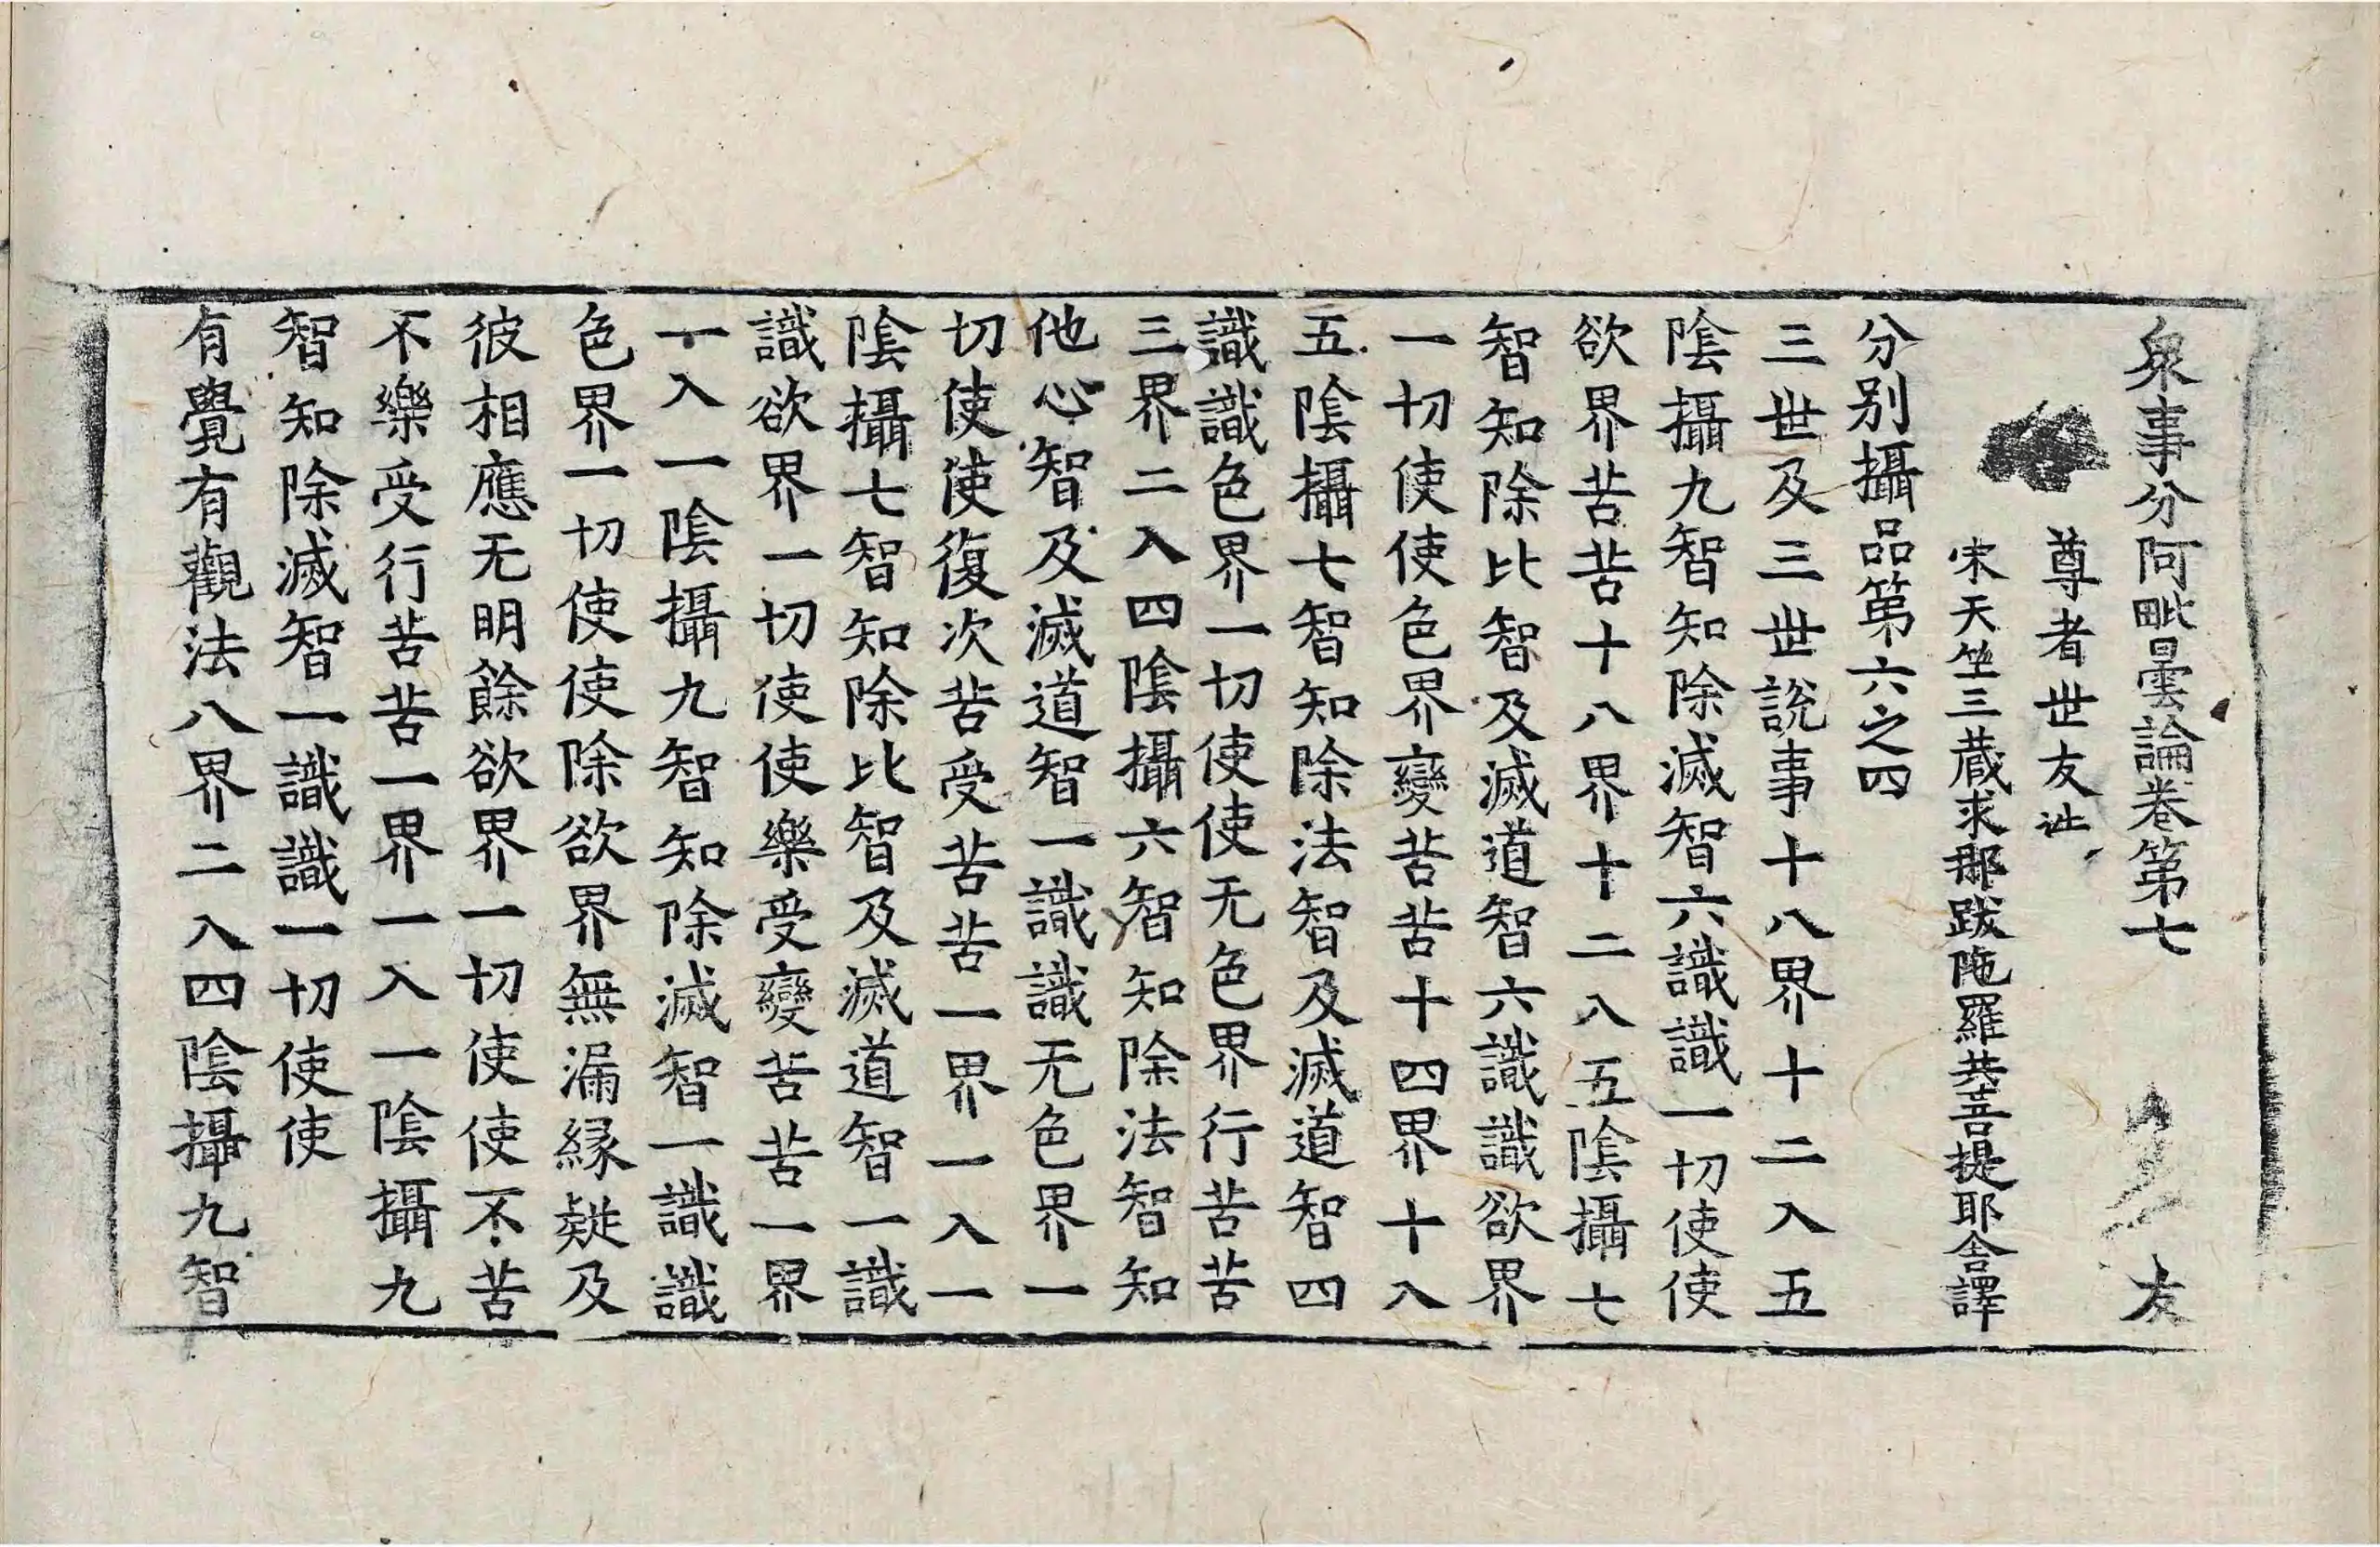 衆事分阿毗曇論卷第七 友
尊者世友造
宋天竺三藏求那跋陁羅共菩提耶舍譯
分別攝品第六之四
三世及三世說事十八界十二入五
陰攝九智知除滅智六識識一切使使
欲界苦苦十八界十二入五陰攝七
智知除比智及滅道智六識識欲界
一切使使色界變苦苦十四界十八
五陰攝七智知除法智及滅道智四
識識色界一切使使无色界行苦苦
三界二入四陰攝六智知除法智知
他心智及滅道智一識識无色界一
切使使復次苦受苦苦一界一入一
陰攝七智知除比智及滅道智一識
識欲界一切使使樂受變苦苦一界
一入一陰攝九智知除滅智一識識
色界一切使使除欲界無漏緣疑及
彼相應无明餘欲界一切使使不苦
不樂受行苦苦一界一入一陰攝九
智知除滅智一識識一切使使
有覺有觀法八界二入四陰攝九智